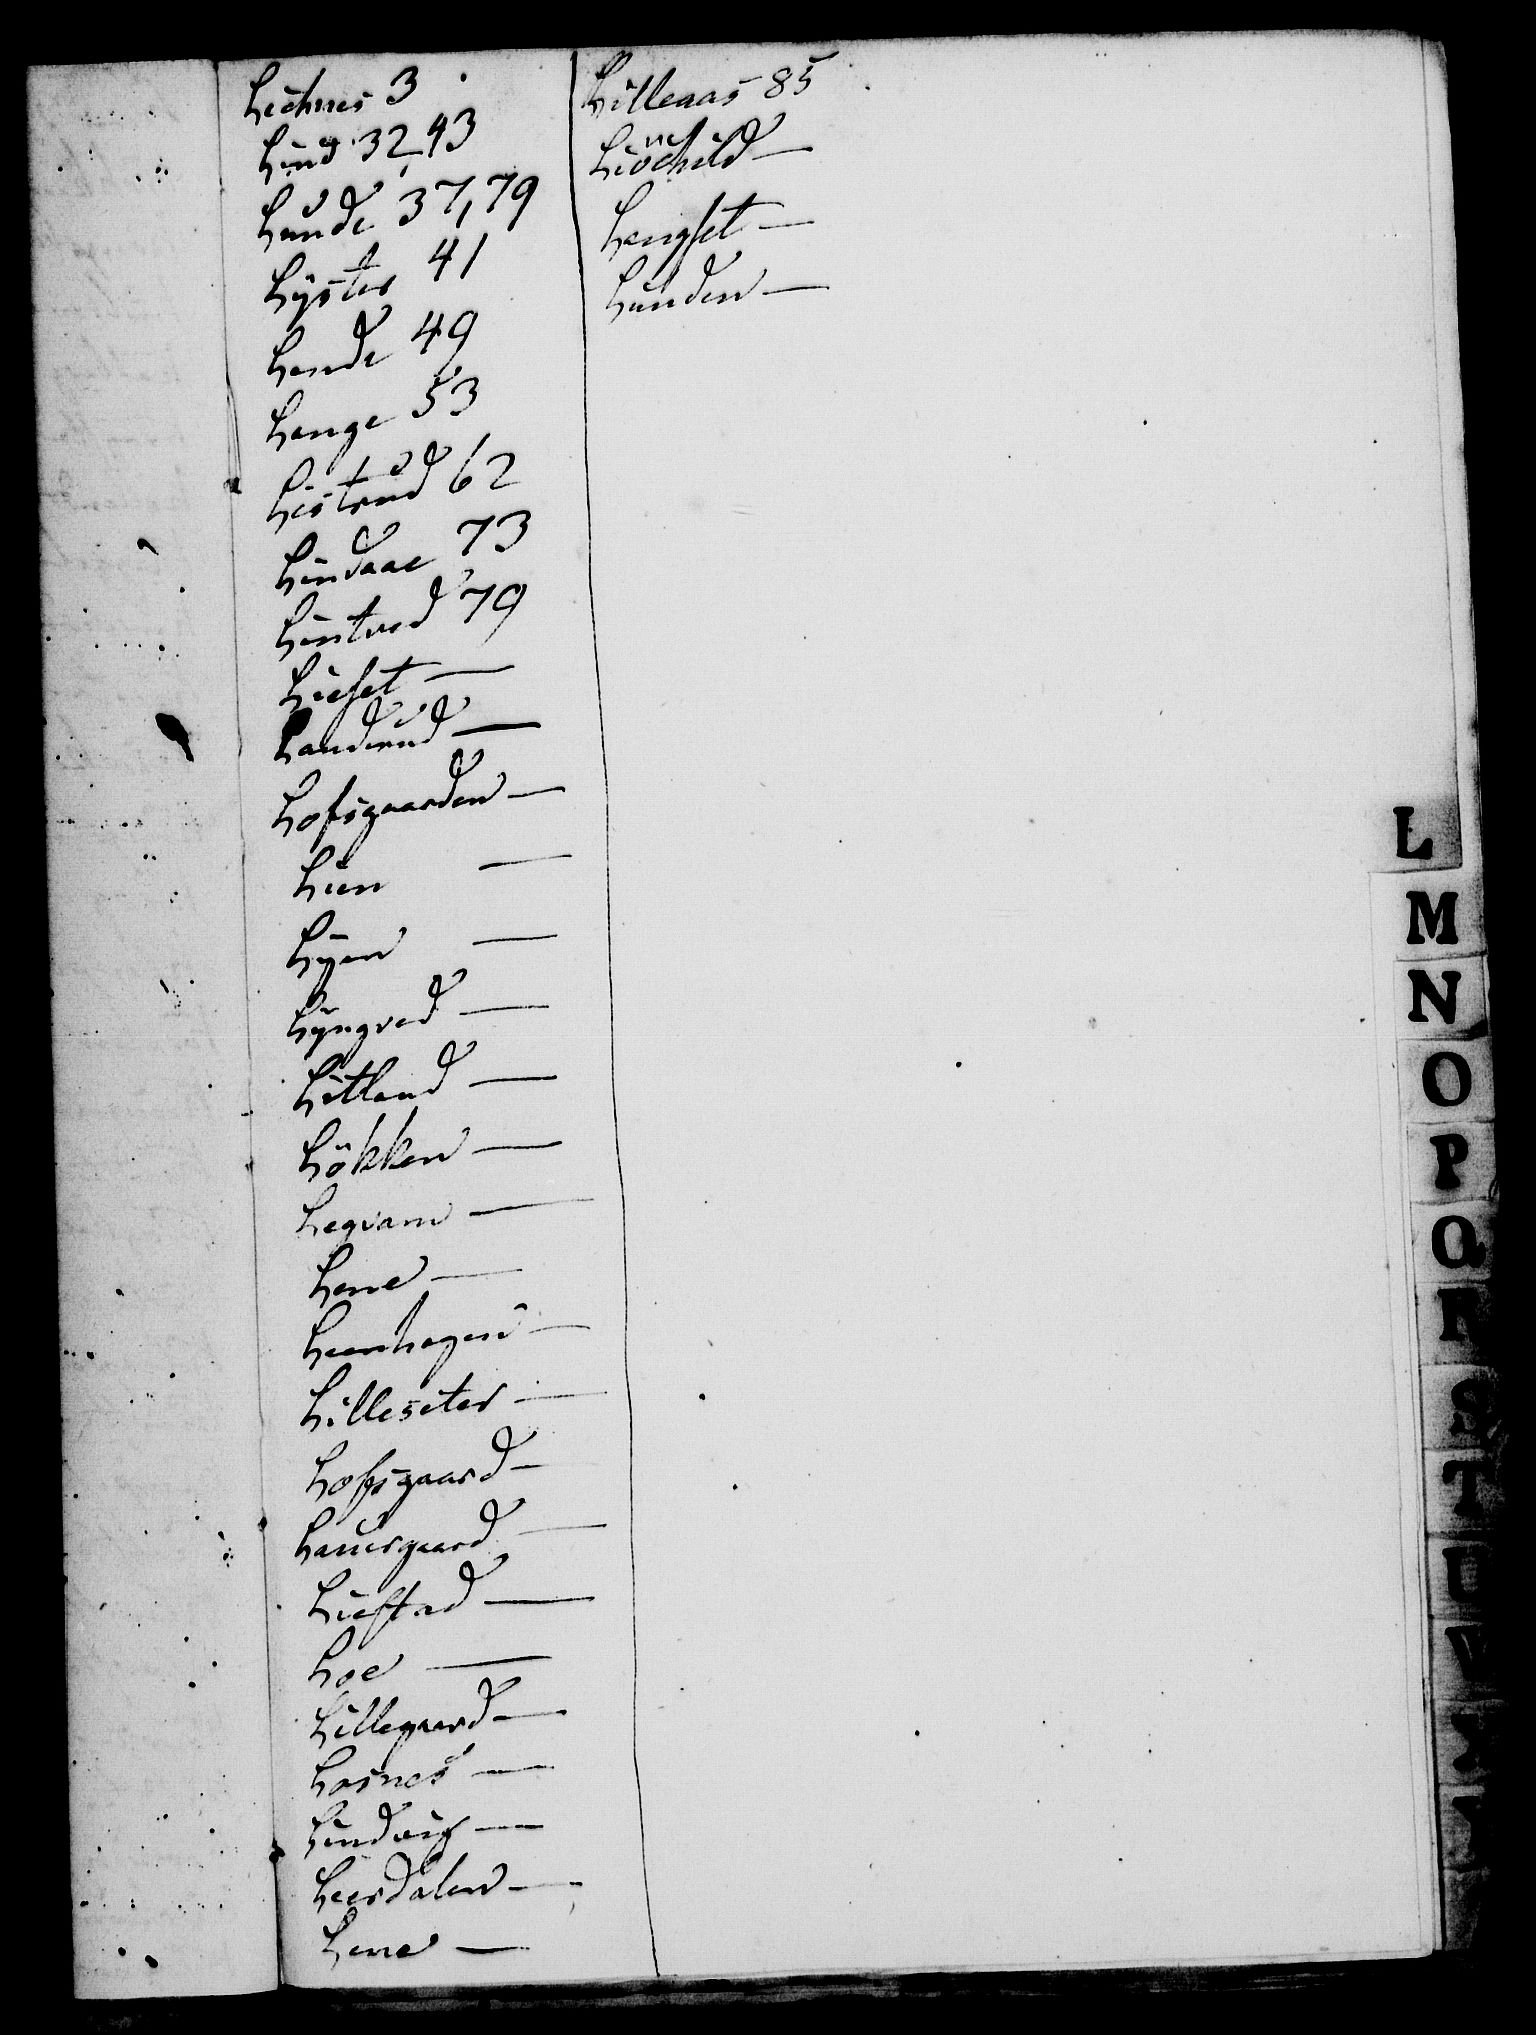 Lechnes 3
Lind 32, 43
Lunde 37, 79
Lyster 41
Lande 49
Lange 53
Listrud 62
Lindaae 73
Lintved 79
Lieset —
Landerud —
Lofsgaarden —
Lien —
Lyen —
Lyngved —
Litland —
Løkken —
Legvam —
Lene —
Leenhagen —
Lilleseter —
Lofsgaard —
Lauergaard —
Liestad —
Loe —
Lillegaard —
Losnes —
Lindvig —
Leerdalen —
Lene —
Lilleaas 85
Langset —
Lunden —
L
M
N
O
P
Q
R
S
T
U
V
X